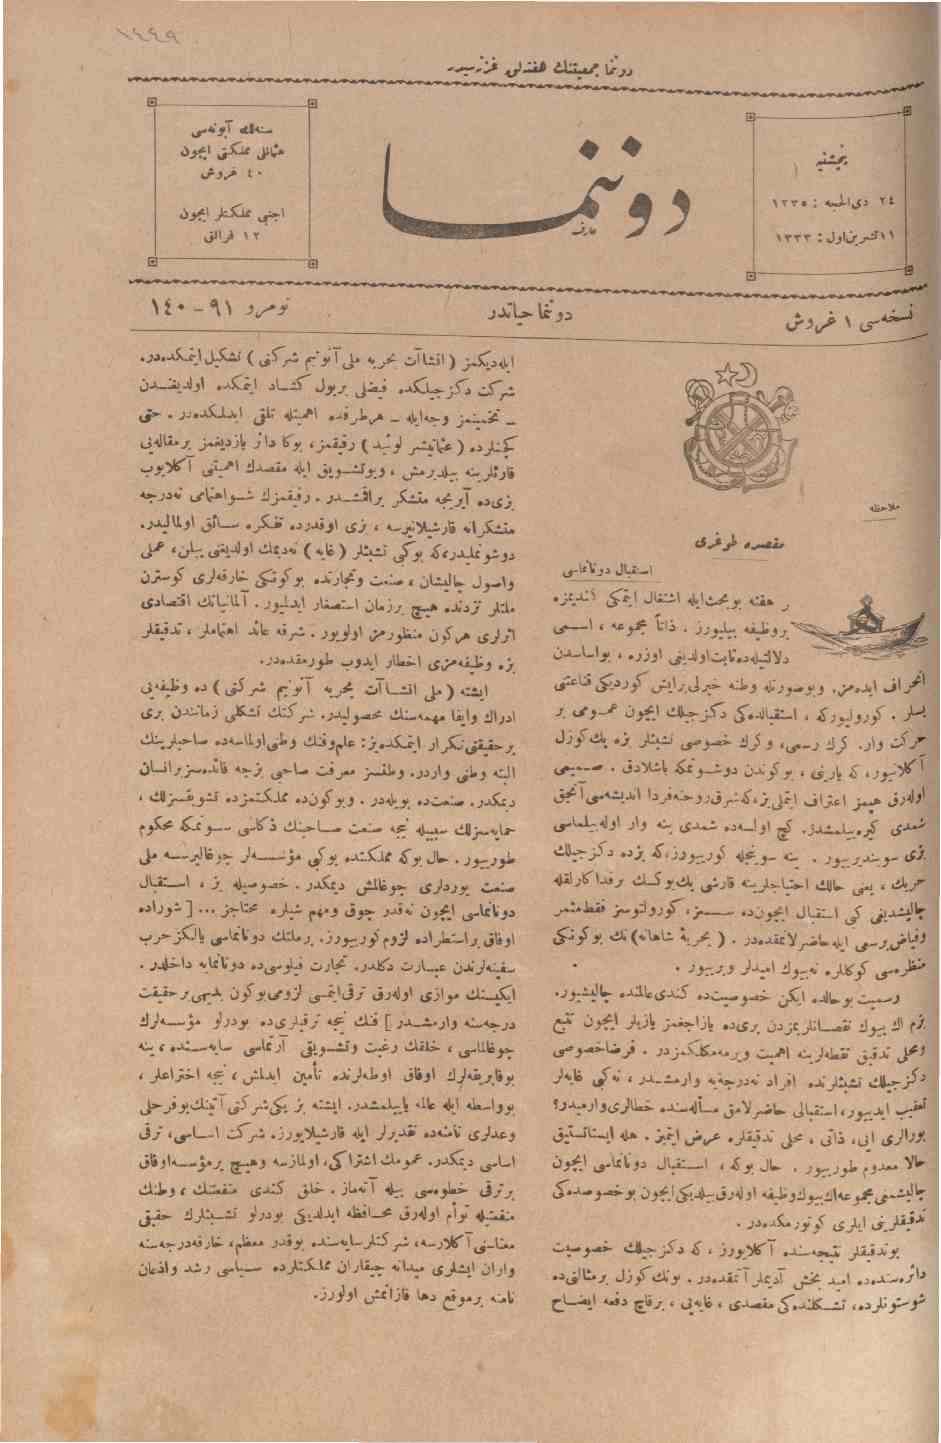 ١٤٤٩
دوننما جمعيتنك هفته‌لق غزته‌سيدر
پنجشنبه
٢٤ ذى الحجه : ١٣٣٥
١١ تشرين اول : ١٣٣٣
دوننما
عارف
سنه‌لك آبونه‌سى
عثمانلى مملكتى ايچون
٤٠ غروش
اجنبى مملكتلر ايچون
١٢ فرانق
نسخه‌سى ١ غروش
دوننما حياتدر
نومرو ٩١ – ١٤٠
ملاحظه
مقصده طوغرى
استقبال دونانماسى
بر هفته بو بحث ايله اشتغال ايتمكى كنديمزه
بر وظيفه بيليورز . ذاتاً مجموعه ، اسمى
دلالتيله‌ده ثابت اولديغى اوزره ، بو اساسدن
انحراف ايده‌مز. وبوصورتله وطنه خيرلى برايش كوردیكى قناعتنى
بسلر . كورولیوركه ، استقبالده‌كى دكزجيلك ايچون عمومى بر
حركت وار. كرك رسمى، وكرك خصوصى تشبثلر بزه پك كوزل
آكلاتيور، كه يارينى ، بوكوندن دوشونمكه باشلادق . صميمى
اوله‌رق هپمز اعتراف ايتملى‌يز، كه شرق روحنه فردا انديشه‌سى آنجق
شمدى كيره‌بيلمشدر. كچ اولسه‌ده شمدى ينه وار اوله‌بيلماسى
بزى سوينديرييور . ينه سوينجله كورييورز، كه بزده دكزجيلك
حربك ، يعنى حالك احتياجلرينه قارشى پك يوكسك بر فداكارلقله
چاليشديغى كبى استقبال ايچون‌ده سسسز، كورولتوسز فقط مثمر
وفياض برسعى ايله حاضرلانمقده‌در . ( بحريهٔ شاهانه) نك بوكونكى
منظره‌سى كوكللره نه بيوك اميدلر ويرييور .
رسميت بو حالده ايكن خصوصيت‌ده كندى عالمنده چاليشيور.
بزم اك بيوك نقصانلريمزدن برى‌ده يازاجغمز يازيلر ايچون تتبع
ومحلى تدقيق نقطه‌لرينه اهميت ويرمه‌مكلكمزدر . فرضا خصوصى
دكزجيلك تشبثلرنده افراد نه‌درجه‌يه وارمشدر ، نه‌كبى غايه‌لر
تعقيب ايدييور، استقبالى حاضرلامق مسأله‌سنده خطالرى وارميدر؟
بورالرى اىى، ذاتى ، محلى تدقيقلره عرض ايتمز . هله ايستاتستيق
حالا معدوم طورييور . حال بوكه ، استقبال دونانماسى ايچون
چاليشمغى مجموعه اك بيوك وظيفه اوله‌رق بيلديكى ايچون بوخصوصده‌كى
تدقيقلرينى ايلرى كوتورمكده‌در .
بوتدقيقلر نتيجه‌سنده آكلايورز ، كه دكزجيلك خصوصيت
دائره‌سنده‌ده اميد بخش آديملر آتمقده‌در . بونك كوزل برمثالنى‌ده
شو ستونلرده، تشكلنده‌كى مقصدى ، غايه‌يى ، برقاچ دفعه ايضاح
ايله‌ديكمز ( انشاآت بحريه ملى آنونيم شركتى ) تشكيل ايتمكده‌در.
شركت دكزجيلكده فيضلى بريول كشاد ايتمكده اولديغندن
– تخمينمز وجه‌ايله – هرطرفده اهميتله تلقى ايدلمكده‌در . حتى
كچنلرده ( عثمانيشر لوئيد ) رفيقمز، بوكا دائر يازديغمز بر مقاله‌يى
قارئلرينه بيلديرمش ، وبو تشويق ايله مقصدك اهميتنى آكلايوب
بزى‌ده آيريجه متشكر براقمشدر . رفيقمزك شو اهتمامى نه‌درجه
متشكرانه قارشيلانيرسه ، بزى اوقدرده تفكره سائق اولماليدر.
دوشونمليدر، كه بوكبى تشبثلر ( غايه ) نه‌ديمك اولديغنى بيلن، عملى
واصول چاليشان ، صنعت وتجارتده بوكونكى خارقه‌لرى كوسترن
ملتلر نزدنده هيچ برزمان استصغار ايدلميور. آلمانيانك اقتصادى
اثرلرى هركون منظورمز اولويور. شرقه عائد اهتماملر ، تدقيقلر
بزه وظيفه‌مزى اخطار ايدوب طورمقده‌در.
ايشته ( ملى انشاآت بحريه آنونيم شركتى ) ده وظيفه‌يى
ادراك وايفا مهمه‌سنك محصوليدر. شركتك تشكلى زماننده‌ن برى
بر حقيقتى تكرار ايتمكده‌يز: علم وفنك وطنى اولماسه‌ده صاحبلرينك
البته وطنى واردر. وطنسز معرفت صاحبى بزجه فائده‌سز برانسان
ديمكدر. صنعت‌ده بويله‌در . وبوكون‌ده مملكتمزده تشويقسزلك ،
حمايه‌سزلك سببيله نيجه صنعت صاحبنك ذكاسى سونمكه محكوم
طورييور. حال بوكه مملكتده بوكبى مؤسسه‌لر چوغاليرسه ملى
صنعت يوردلرى چوغالمش ديمكدر. خصوصيله بز ، استقبال
دونانماسى ايچون نه‌قدر چوق ومهم شيلره محتاجز ... [ شوراده
اوفاق بر استطراده لزوم كورييورز. برملتك دونانماسى يالكز حرب
سفينه‌لرندن عبارت دكلدر. تجارت فيلوسى‌ده دونانمايه داخلدر.
ايكيسنك موازى اوله‌رق ترقى ايتمسى لزومى بوكون بديهى برحقيقت
درجه‌سنه وارمشدر ] فنك نيجه ترقيلرى‌ده بوتورلو مؤسسه‌لرك
چوغالماسى ، خلقك رغبت وتشويقى آرتماسى سايه‌سنده ، ينه
بوفابريقه‌لرك اوفاق اوطه‌لرنده تأمين ايدلمش ، نيجه اختراعلر ،
بوواسطه ايله عالمه يايلمشدر. ايشته بز يكى شركتى آتينك بو فرحلى
وعدلرى نامنه‌ده تقديرلر ايله قارشيلايورز. شركت اساسى، ترقى
اساسى ديمكدر. عمومك اشتراكى، اولمازسه وهيچ برمؤسسه اوفاق
بر ترقى خطوه‌سى بيله آته‌ماز. خلق كندى منفعتنك ، وطنك
منفعتيله توأم اوله‌رق محافظه ايدلديكى بوتورلو تشبثلرك حقيقى
معناسنى آكلارسه، شركتلر سايه‌سنده بوقدر معظم، خارقه‌درجه‌سنه
واران ايشلرى ميدانه چيقاران مملكتلرده سياسى رشد واذعان
نامنه برموقع دها قازانمش اولورز.